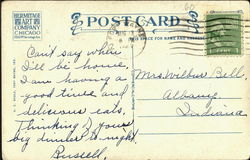 HERMITAGE
ART
COMPANY
CHICAGO
POST CARD
SPACE FOR NAME AND ADDRESS
Can't say when
I'll be home.
I am having a
good time and
delicious eats.
Thinking of your
big dinner to-night
Russell.
Mrs. Wilbur Bell
Albany,
Indiana